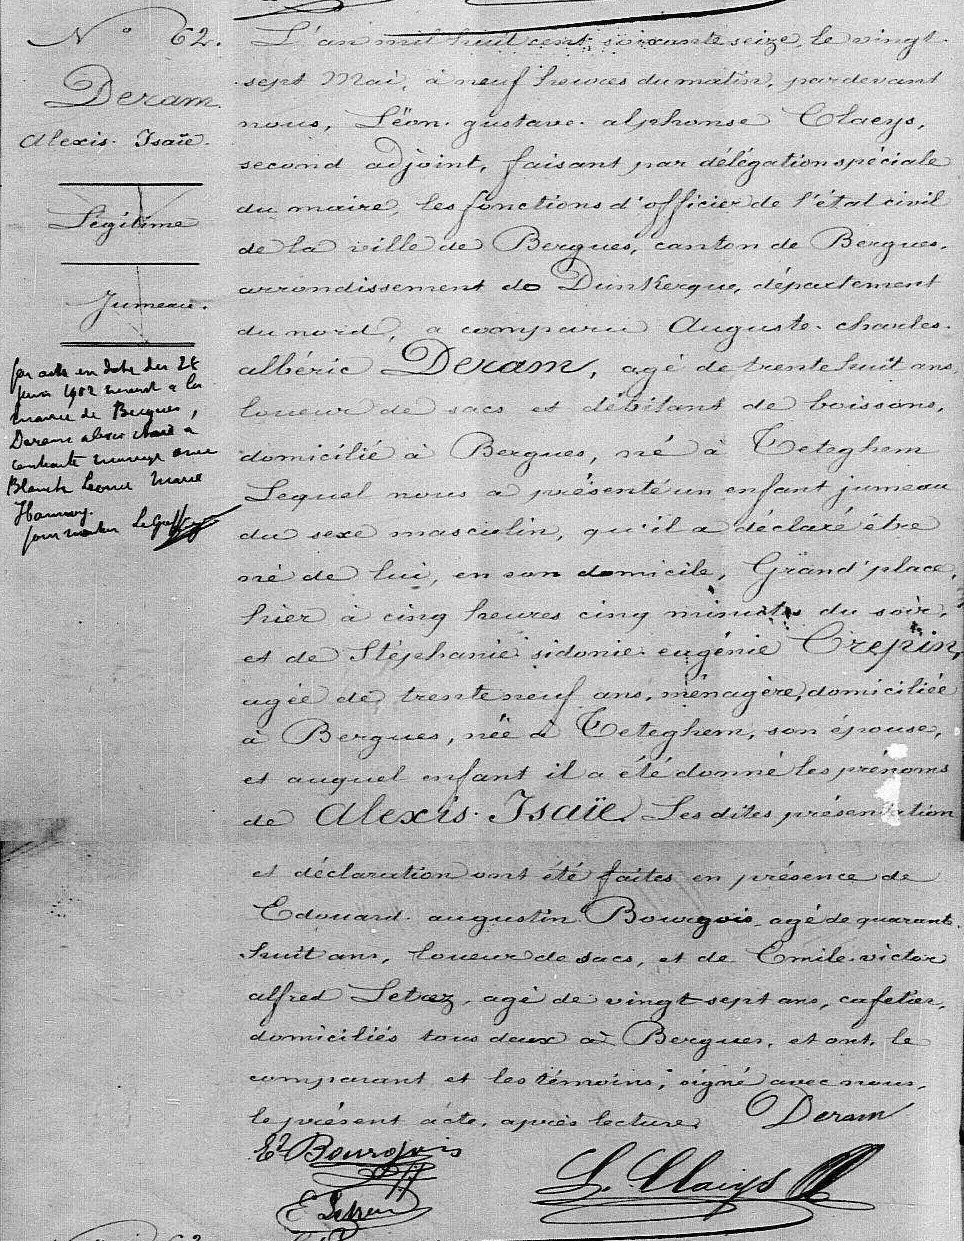 N° 62.
Deram
Alexis. Isaïe.
Légitime
Jumeau.
par acte en date du 28
juin 1902 devant la
mairie de Bergues,
Deram alexis isaïe a
contracté mariage avec
Blanche Leonie Marie
L'an mil huit cent soixante seize, le vingt
sept Mai, à neuf heures du matin, par devant
nous, Léon. gustave. alphonse Claeys,
second adjoint, faisant par délégation spéciale
du maire, les fonctions d'officier de l'état civil
de la ville de Bergues, canton de Bergues,
arrondissement de Dunkerque, département
du nord, a comparu Auguste. charles.
albéric Deram, agé de trente huit ans,
loueur de sacs et débitant de boissons,
domicilié à Bergues, né à Teteghem
Lequel nous a présenté un enfant jumeau
du sexe masculin, qu'il a déclaré être
né de lui, en son domicile, Grand'place,
hier à cinq heures cinq minutes du soir,
et de Stéphanie. sidonie. eugénie Crepin,
agée de trente neuf ans, ménagère, domiciliée
à Bergues, née à Teteghem, son épouse,
et auquel enfant il a été donné les prénoms
de Alexis. Isaïe. Les dites présentation
et déclaration ont été faites en présence de
Edouard. augustin Bourgois, agé de quarante
huit ans, loueur de sacs, et de Emile. victor
alfred Letrez, agé de vingt sept ans, cafetier,
domiciliés tous deux à Bergues, et ont, le
comparant et les témoins, signé avec nous,
le présent acte, après lecture. Deram
Ed Bourgois
L. Claeys